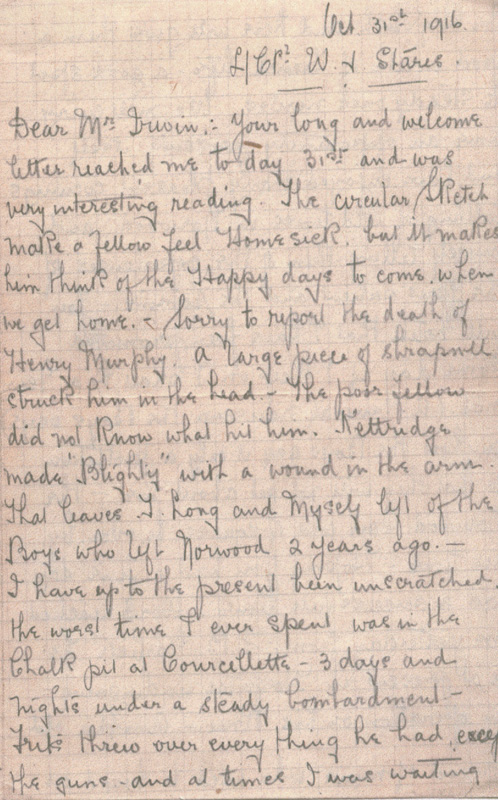 Oct 31st 1916.
L/Cpl W. J. Shares.
Dear Mr Irwin,:- Your long and welcome
letter reached me to day 31st and was
very interesting reading. The circular Sketch
make a fellow feel Homesick, but it makes
him think of the Happy days to come, when
we get home. - Sorry to report the death of
Henry Murphy. A large piece of shrapnell
struck him in the head. - The poor fellow
did not know what hit him. Kettridge
made "Blighty" with a wound in the arm.
That leaves J. Long and Myself left of the
Boys who left Norwood 2 years ago. -
I have up to the present been unscratched.
the worst time I ever spent was in the
Chalk pit at Courcellette - 3 days and
nights under a steady bombardment -
Fritz threw over every thing he had, except
the guns - and at times I was waiting